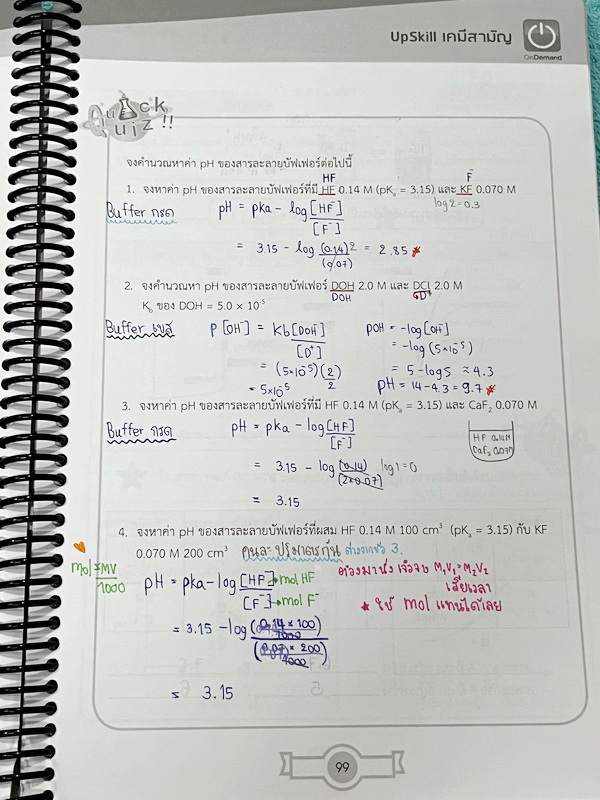 UpSkill เคมีสามัญ
OnDemand
Quick Quiz !!
จงคำนวณหาค่า pH ของสารละลายบัฟเฟอร์ต่อไปนี้
HF F⁻
1. จงหาค่า pH ของสารละลายบัฟเฟอร์ที่มี HF 0.14 M (pKₐ = 3.15) และ KF 0.070 M
log 2 = 0.3
Buffer กรด pH = pka - log [HF⁻]/[F⁻]
= 3.15 - log (0.14)2/(0.07) = 2.85
2. จงคำนวณหา pH ของสารละลายบัฟเฟอร์ DOH 2.0 M และ DCl 2.0 M
DOH D⁺
K_b ของ DOH = 5.0 × 10⁻⁵
Buffer เบส [OH⁻] = Kb[DOH]/[D⁺] pOH = -log[OH⁻]
= (5×10⁻⁵)(2/2) = -log(5×10⁻⁵)
= 5×10⁻⁵ = 5 - log5 ≈ 4.3
pH = 14 - 4.3 = 9.7
3. จงหาค่า pH ของสารละลายบัฟเฟอร์ที่มี HF 0.14 M (pKₐ = 3.15) และ CaF₂ 0.070 M
Buffer กรด pH = pka - log [HF]/[F⁻]
HF 0.14M
CaF₂ 0.07M
= 3.15 - log (0.14)/(2×0.07) log 1 = 0
= 3.15
4. จงหาค่า pH ของสารละลายบัฟเฟอร์ที่ผสม HF 0.14 M 100 cm³ (pKₐ = 3.15) กับ KF
0.070 M 200 cm³ คนละปริมาตรกัน ต่างจากข้อ 3.
mol = MV/1000
pH = pka - log [HF]→mol HF/[F⁻]→mol F⁻
ต้องมานั่งเจือจาง M₁V₁=M₂V₂
เสียเวลา
★ ใช้ mol แทนได้เลย
= 3.15 - log (0.14 × 100/1000)/(0.07 × 200/1000)
= 3.15
99